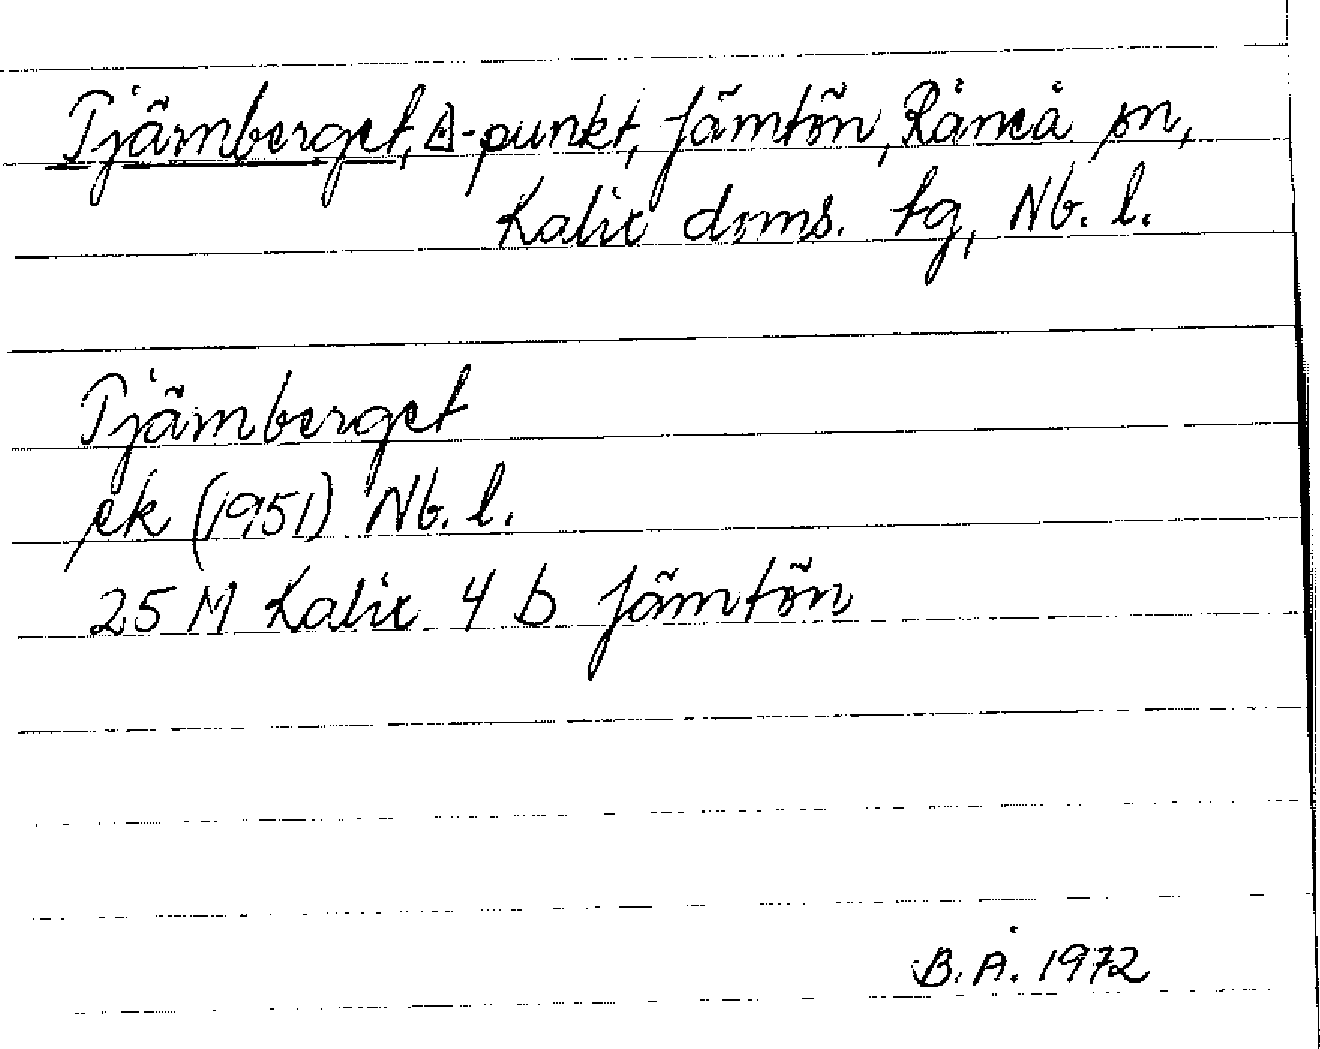 Tjärnberget, △-punkt, Jämtön, Råneå sn,
Kalix doms. tg, Nb. l.
Tjärnberget
ek (1951) Nb. l.
25 M Kalix 4 b Jämtön
B. Å. 1972